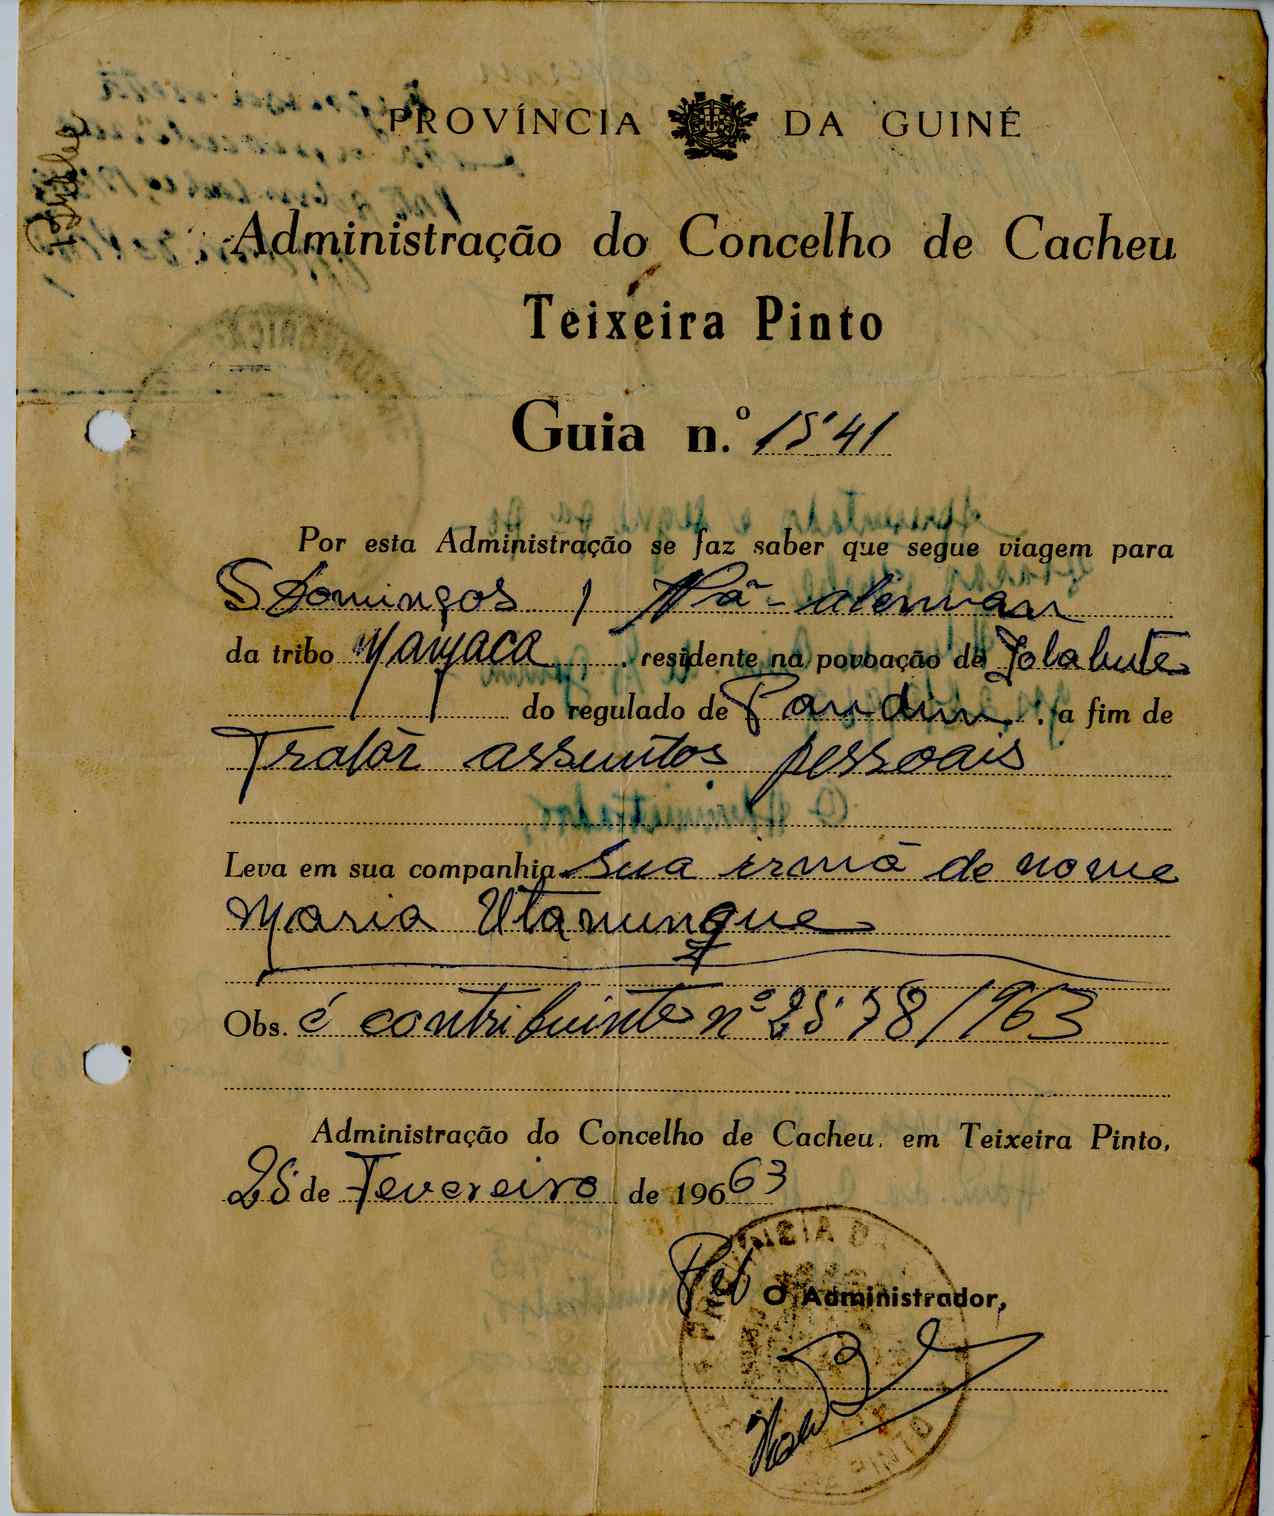 PROVÍNCIA DA GUINÉ
Administração do Concelho de Cacheu
Teixeira Pinto
Guia n.º 1541
Por esta Administração se faz saber que segue viagem para
S Domingos,
da tribo Manjaca residente na povoação de
do regulado de Pandim a fim de
Tratar assuntos pessoais
Leva em sua companhia Sua irmã de nome
Maria
Obs. é contribuinte nº 2578/963
Administração do Concelho de Cacheu, em Teixeira Pinto,
25 de Fevereiro de 19663
Pel O Administrador,
PINTO